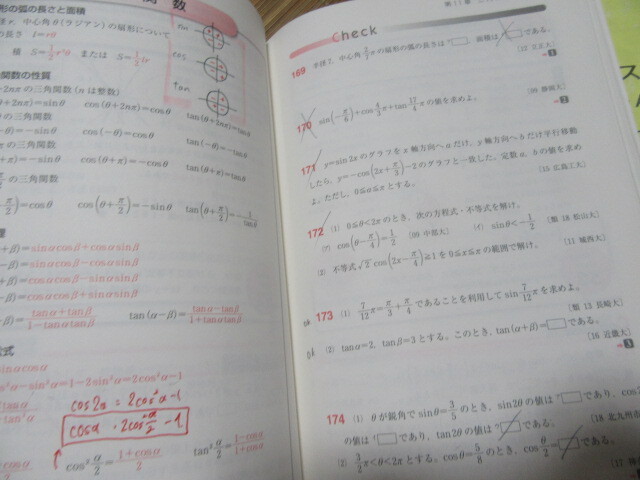 関数
形の弧の長さと面積
径 r, 中心角 θ (ラジアン) の扇形について
の長さ l=rθ
積 S=1/2 r²θ または S=1/2 lr
角関数の性質
+2nπ の三角関数 (n は整数)
θ+2nπ)=sinθ cos(θ+2nπ)=cosθ tan(θ+2nπ)=tanθ
の三角関数
-θ)=-sinθ cos(-θ)=cosθ tan(-θ)=-tanθ
の三角関数
+π)=-sinθ cos(θ+π)=-cosθ tan(θ+π)=tanθ
π/2 の三角関数
π/2)=cosθ cos(θ+π/2)=-sinθ tan(θ+π/2)=-1/tanθ
+β)=sinαcosβ+cosαsinβ
-β)=sinαcosβ-cosαsinβ
+β)=cosαcosβ-sinαsinβ
-β)=cosαcosβ+sinαsinβ
=tanα+tanβ/1-tanαtanβ tan(α-β)=tanα-tanβ/1+tanαtanβ
式
sinαcosα
s²α-sin²α=1-2sin²α=2cos²α-1
cos2α = 2cos²α-1
cosα = 2cos²α/2 -1
cos²α/2=1+cosα/2 tan²α/2=1-cosα/1+cosα
sin
cos
tan
第11章
Check
169 半径 7, 中心角 の扇形の弧の長さは ア□ 面積は イ□ である。
170 sin(-π/6)+cos4/3π+tan17/4π の値を求めよ。
171 y=sin2x のグラフを x 軸方向へ a だけ, y 軸方向へ b だけ平行移動
したら, y=-cos(2x+π/3)-2 のグラフと一致した。定数 a, b の値を求め
よ。ただし, 0≦a≦π とする。
[15 広島工大]
172 (1) 0≦θ<2π のとき, 次の方程式・不等式を解け。
(ア) cos(θ-π/4)=1/2 [09 中部大] (イ) sinθ<-1/2 [類 18 松山大]
(2) 不等式 √2 cos(2x-π/4)≧1 を 0≦x≦π の範囲で解け。 [11 城西大]
ok 173 (1) 7/12π=π/3+π/4 であることを利用して sin7/12π を求めよ。
[類 13 長崎大]
ok (2) tanα=2, tanβ=3 とする。このとき, tan(α+β)=□ である。
[16 近畿大]
174 (1) θ が鋭角で sinθ=3/5 のとき, sin2θ の値は ア□ であり, cos2
の値は イ□ であり, tan2θ の値は ウ□ である。 [18 北九州市
(2) 3/2π<θ<2π とする。cosθ=5/8 のとき, cosθ/2=□ である。